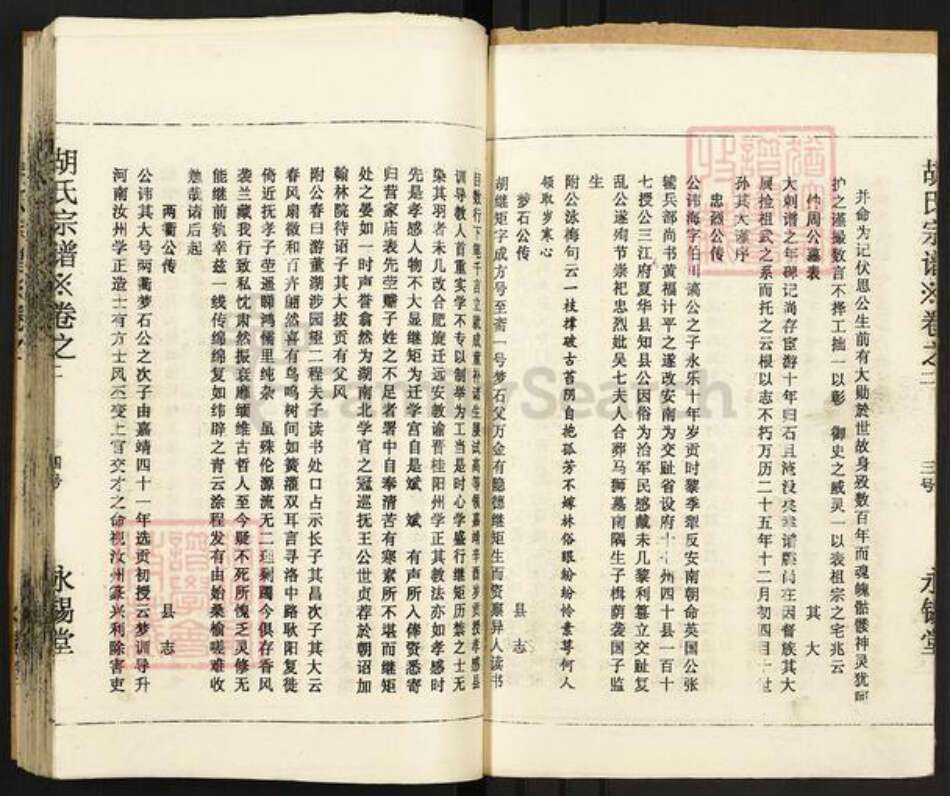 胡氏宗谱※卷之二
三号
永锡堂
并命为记伏思公生前有大勋於世故身殁数百年而魂魄骷髅神灵犹
护之谨撮数言不择工拙一以彰 御史之威灵一以表祖宗之宅兆云
仲周公墓表 其大
大刺谱之年碑记尚存宦游十年归石且淹没矣幸谱牒尚在因督族其大
展检祖武之系而托之云根以志不朽万历二十五年十二月初四日
孙其大谨序
忠烈公传
公讳海字伯川滴公之子永乐十年岁贡时黎季犁反安南朝命英国公张
辅兵部尚书黄福计平之遂改安南为交趾省设府十七州四十县一百十
七授公三江府夏华县知县公因俗为治军民感戴未几黎利篡立交趾复
乱公遂殉节崇祀忠烈妣吴七夫人合葬马狮墓南隅生子楫荫袭国子监
生
附公泳梅句云一枝撑破古苔阴自抱孤芳不嫁林俗眼纷纷怜素萼何人
领取岁寒心
梦石公传 县志
胡继矩字成方号至斋一号梦石父万金有隐德继矩生而资禀异人读书
目数行下笔千言立就成童补诸生屡试高等领嘉靖辛酉岁贡授孝感县
训导教人首重实学不专以制举为工当是时心学盛行继矩历禁之士无
染其羽者未几改合肥旋迁远安教谕晋桂阳州学正其教法亦如孝感时
先是孝感人物不大显继矩为迁学宫自是斌斌有声所入俸资悉寄
归营家庙表先茔赡子姓之不足者署中自奉清苦有寒素所不堪而继矩
处之晏如一时声誉翕然为湖南北学官之冠巡抚王公世贞荐於朝诏加
翰林院待诏子其大拔贡有父风
附公春日游董湖涉园望二程夫子读书处口占示长子其昌次子其大云
春风扇微和百卉翩然喜有鸟鸣树间如簧灌双耳言寻洛中路耿阳复徙
倚近抚孝子茔遥瞩鸿儒里纯杂 虽殊伦源流无二理剩躅今俱存香风
袭兰藏我行致私忱肃然振衰靡缅维古哲人至今疑不死所愧乏灵修无
能继前轨幸兹一线传绵绵复如纬辟之青云涂程发有由始桑榆嗟难收
勉哉诸后起
两衢公传 县志
公讳其大号两衢梦石公之次子由嘉靖四十一年选贡初授云梦训导升
河南汝州学正造士有方士风丕变上官交才之命视汝州篆兴利除害吏
胡氏宗谱※卷之二
四号
永锡堂